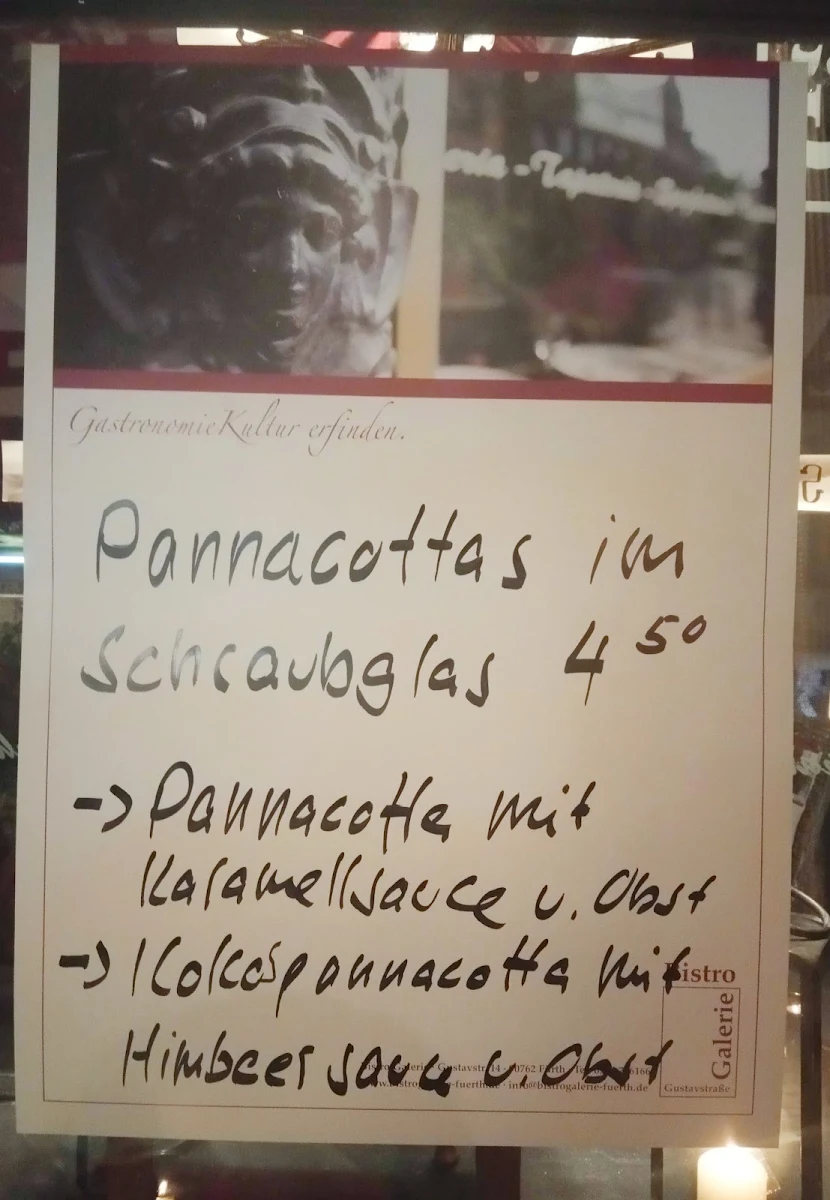 GastronomieKultur erfinden.
Pannacottas im
Schraubglas 4 50
-> Pannacotta mit
Karamellsauce u. Obst
-> Kokospannacotta mit
Himbeersauce u. Obst
Bistro
Galerie
Gustavstraße
Gustavstr. 14 · 90762 Fürth
info@bistrogalerie-fuerth.de